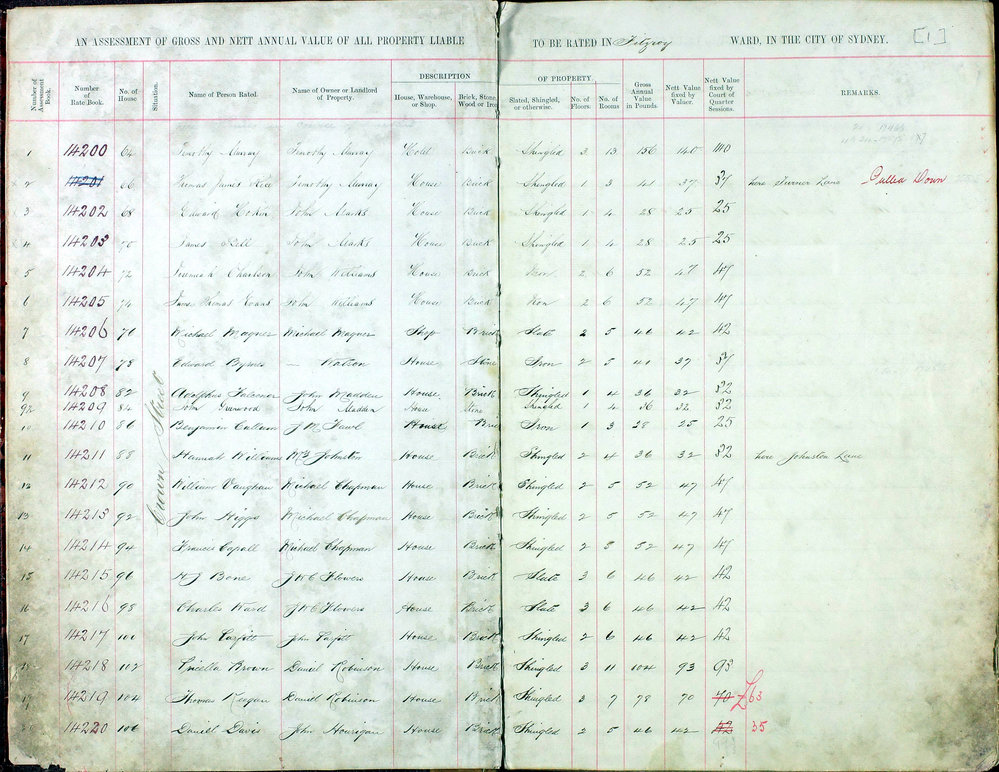 AN ASSESSMENT OF GROSS AND NETT ANNUAL VALUE OF ALL PROPERTY LIABLE TO BE RATED IN Fitzroy WARD, IN THE CITY OF SYDNEY. [1]
DESCRIPTION OF PROPERTY.
Number of Assessment Book. Number of Rate Book. No. of House Situation. Name of Person Rated. Name of Owner or Landlord of Property. House, Warehouse, or Shop. Brick, Stone, Wood or Iron Slated, Shingled, or otherwise. No. of Floors. No. of Rooms Gross Annual Value in Pounds. Nett Value fixed by Valuer. Nett Value fixed by Court of Quarter Sessions. REMARKS.
Crown Street
1 14200 64 Timothy Murray Timothy Murray Hotel Brick Shingled 3 13 156 140 140
2 14201 66 Thomas James Rice Timothy Murray House Brick Shingled 1 3 41 37 37 here Turner Lane Pulled Down
3 14202 68 Edward John Marks House Brick Shingled 1 4 28 25 25
4 14203 70 James Bell John Marks House Brick Shingled 1 4 28 25 25
5 14204 72 Jeremiah Charlson John Williams House Brick Iron 2 6 52 47 47
6 14205 74 James Thomas Evans John Williams House Brick Iron 2 6 52 47 47
7 14206 76 Michael Wagner Michael Wagner Shop Brick Slate 2 5 46 42 42
8 14207 78 Edward Byrnes — Watson House Stone Iron 2 5 41 37 37
9 14208 82 Adolphus Falconer John Madden House Brick Shingled 1 4 36 32 32
9½ 14209 84 John Greenwood John Madden House Stone Shingled 1 4 36 32 32
14210 86 Benjamin Cullam J M House Brick Iron 1 3 28 25 25
11 14211 88 Hannah Williams Mrs Johnston House Brick Shingled 2 4 36 32 32 here Johnston Lane
12 14212 90 William Vaughan Michael Chapman House Brick Shingled 2 5 52 47 47
13 14213 92 John Higgs Michael Chapman House Brick Shingled 2 5 52 47 47
14 14214 94 Francis Capell Michael Chapman House Brick Shingled 2 5 52 47 47
15 14215 96 H J Bone J W C Flowers House Brick Slate 3 6 46 42 42
16 14216 98 Charles Ward J W C Flowers House Brick Slate 3 6 46 42 42
17 14217 100 John Parfitt John Parfitt House Brick Shingled 2 6 46 42 42
18 14218 102 Pricella Brown Daniel Robinson House Brick Shingled 3 11 104 93 93
19 14219 104 Thomas Keegan Daniel Robinson House Brick Shingled 3 7 78 70 70 £63
14220 106 Daniel Davis John Hourigan House Brick Shingled 2 5 46 42 42 35